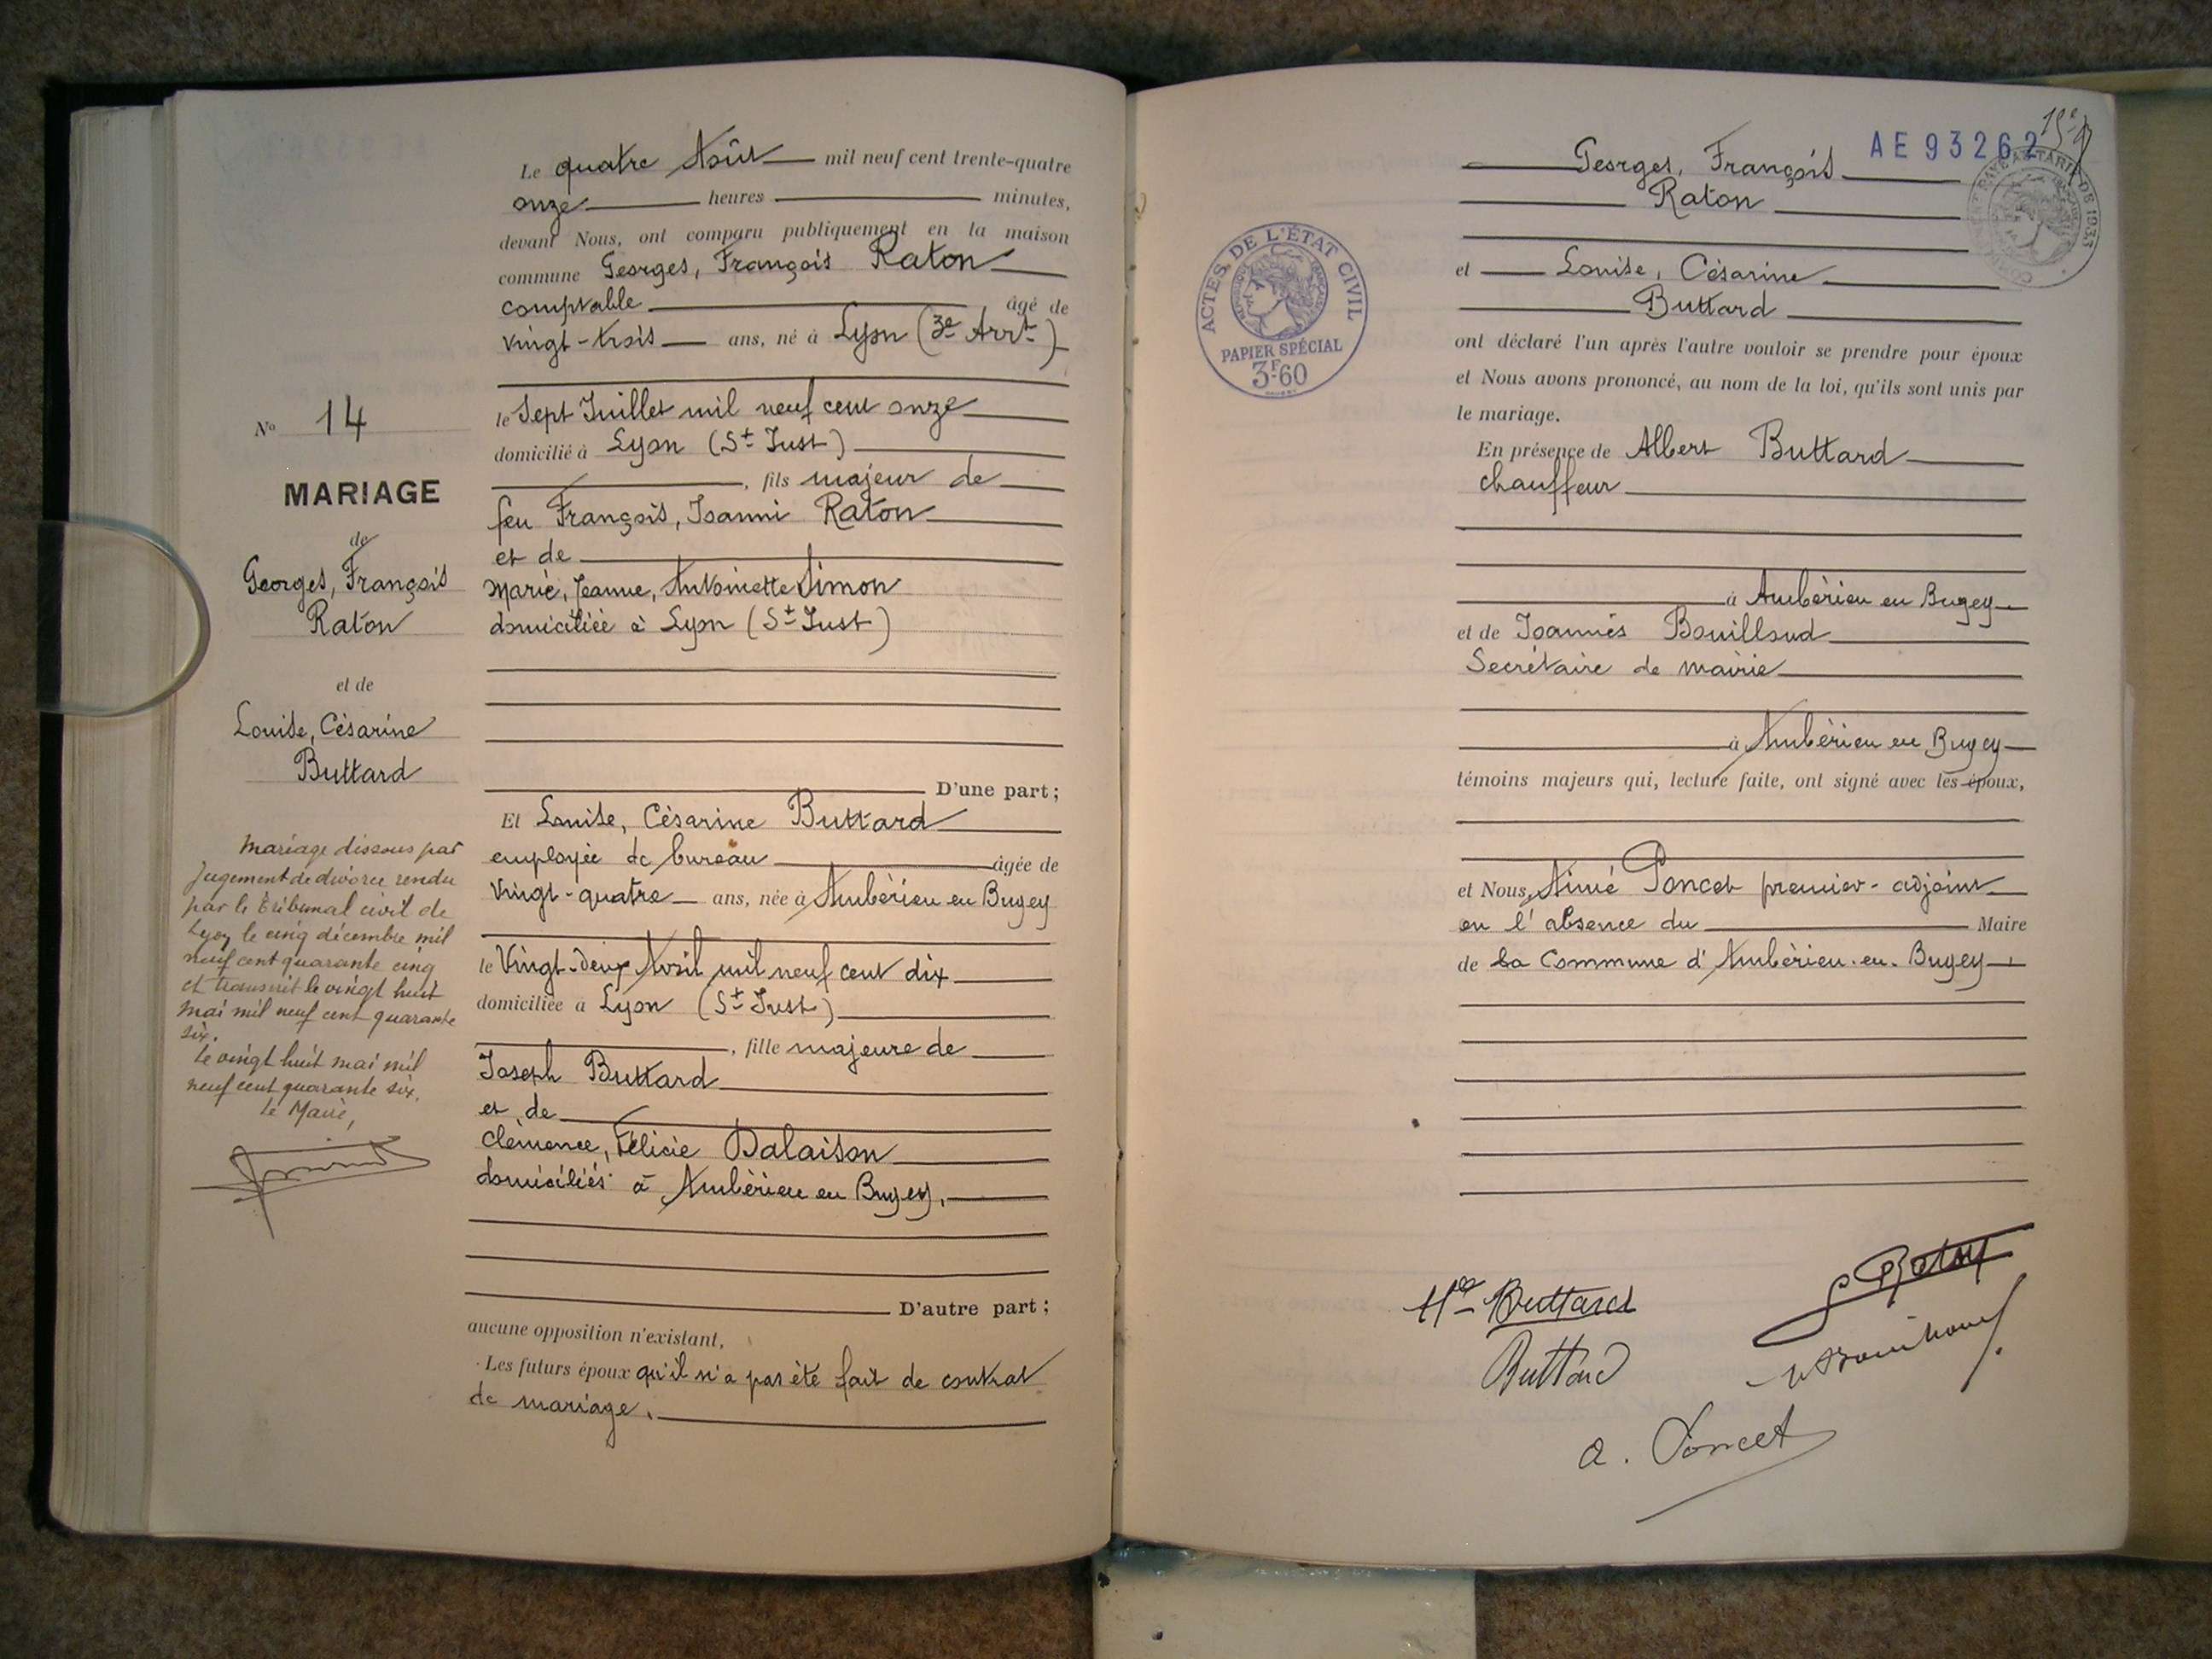 Le quatre Août mil neuf cent trente-quatre
onze heures minutes,
devant Nous, ont comparu publiquement en la maison
commune Georges, François Raton
comptable âgé de
vingt-trois ans, né à Lyon (3e Arrt)
le Sept Juillet mil neuf cent onze
domicilié à Lyon (St Just)
, fils majeur de
feu François, Joanni Raton
et de
Marie, Jeanne, Antoinette Simon
domiciliée à Lyon (St Just)
D'une part;
Et Louise, Césarine Buttard
employée de bureau âgée de
Vingt-quatre ans, née à Ambérieu en Bugey
le Vingt-deux Avril mil neuf cent dix
domiciliée à Lyon (St Just)
, fille majeure de
Joseph Buttard
et de
Clémence, Félicie Dalaison
domiciliés à Ambérieu en Bugey.
D'autre part;
aucune opposition n'existant,
Les futurs époux qu'il n'a pas été fait de contrat
de mariage.
No 14
MARIAGE
de
Georges, François
Raton
et de
Louise, Césarine
Buttard
Mariage dissous par
jugement de divorce rendu
par le tribunal civil de
Lyon le cinq décembre mil
neuf cent quarante cinq
et transcrit le vingt huit
mai mil neuf cent quarante
six.
Le vingt huit mai mil
neuf cent quarante six.
Le Maire,
AE 93262
Georges, François
Raton
et Louise, Césarine
Buttard
ont déclaré l'un après l'autre vouloir se prendre pour époux
et Nous avons prononcé, au nom de la loi, qu'ils sont unis par
le mariage.
En présence de Albert Buttard
chauffeur
à Ambérieu en Bugey
et de Joannès Bouilloud
Secrétaire de mairie
à Ambérieu en Bugey
témoins majeurs qui, lecture faite, ont signé avec les époux,
et Nous, Aimé Poncet premier-adjoint
en l'absence du Maire
de la Commune d'Ambérieu-en-Bugey
ACTES DE L'ÉTAT CIVIL
RÉPUBLIQUE FRANÇAISE
PAPIER SPÉCIAL
3F60
Buttard
Raton
Buttard
a. Poncet